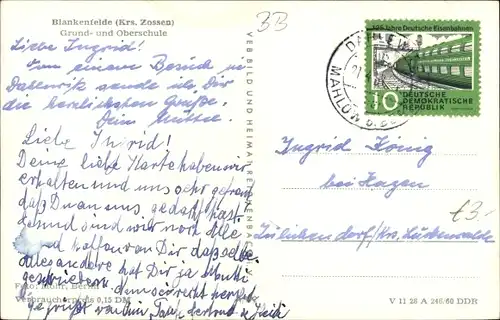 Blankenfelde (Krs. Zossen)
Grund- und Oberschule
3B
Liebe Ingrid!
Von einem Besuch in
Dahlewitz sende ich Dir
die herzlichsten Grüße.
Deine Mutter.
Liebe Ingrid!
Deine liebe Karte haben wir
erhalten und uns sehr gefreut
daß Du an uns gedacht hast.
Gesund sind wir noch alle
und hoffen von Dir dasselbe.
Alles andere hat Dir ja Mutti
geschrieben.
Foto: Mohr, Berlin
Verbraucherpreis 0,15 DM
gegrüßt von
VEB BILD UND HEIMAT REICHENBACH
125 Jahre Deutsche Eisenbahnen
10
DEUTSCHE
DEMOKRATISCHE
REPUBLIK
DAHLEWITZ
MAHLOW
Ingrid König
bei Hagen
Jülichendorf/Krs. Luckenwalde
€3.-
V 11 28 A 246/60 DDR